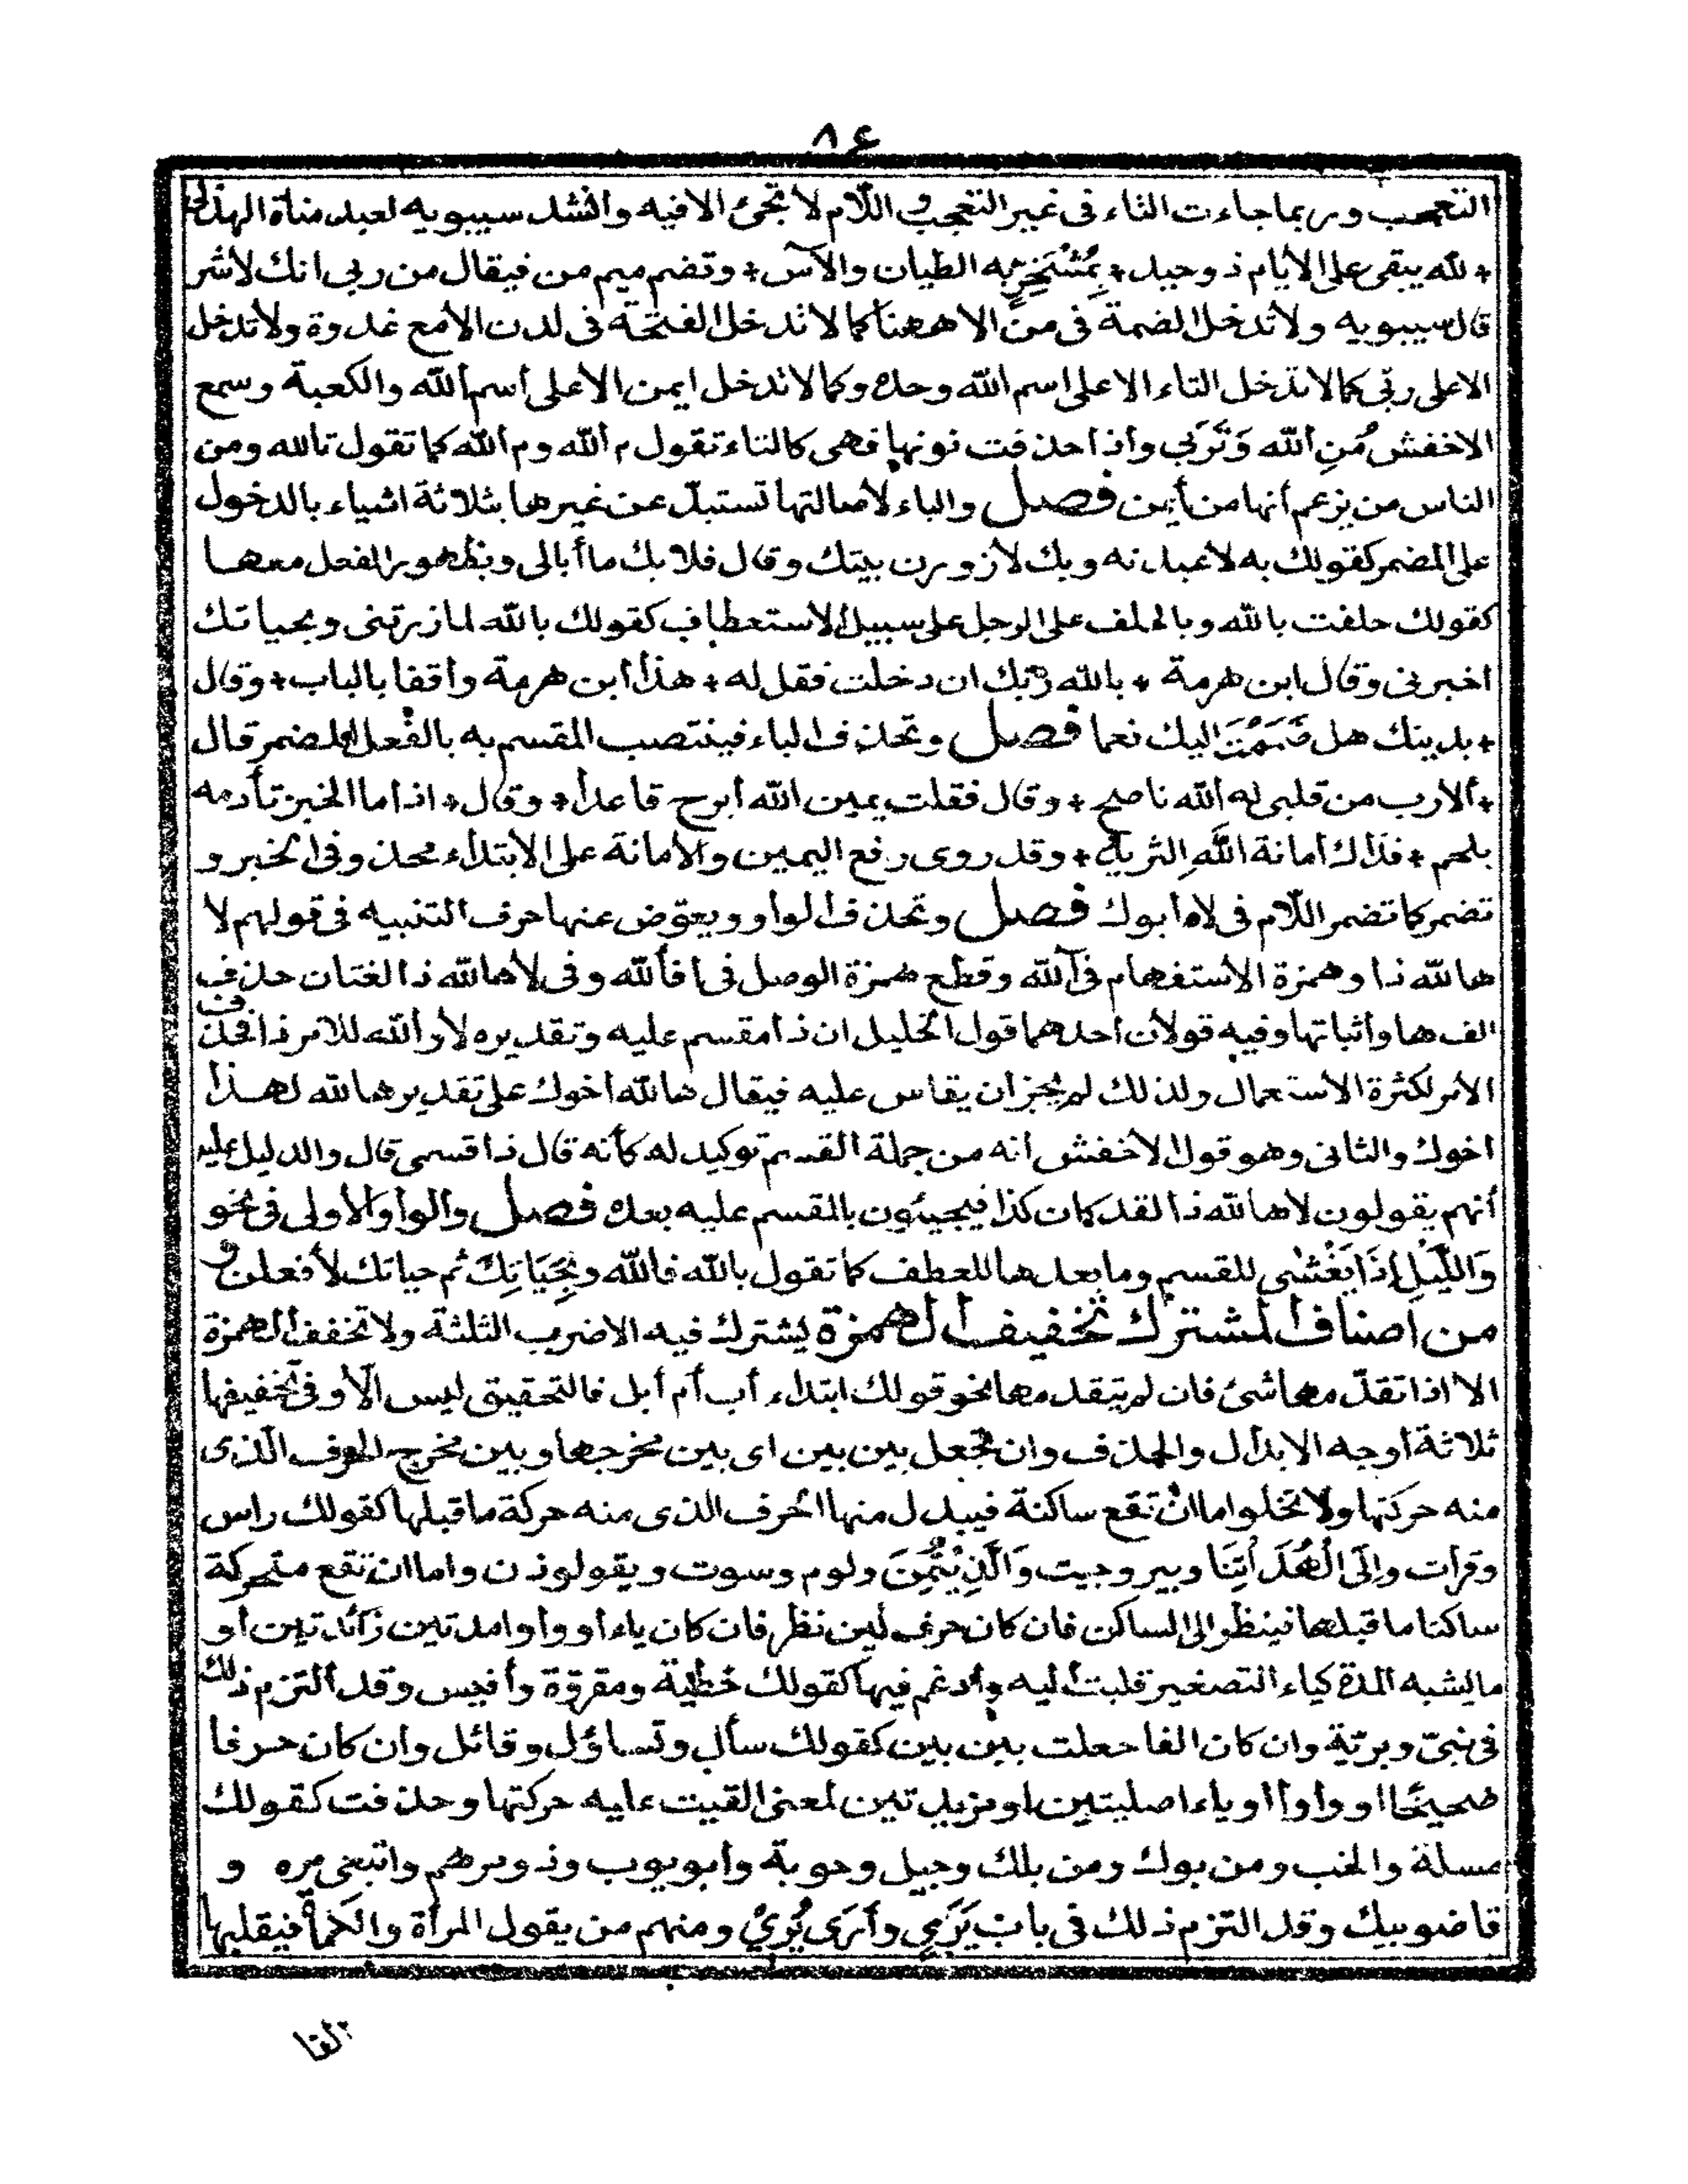 ٨٤
التعجب وربما جاءت التاء فى غير التعجب واللّام لا تجئ الا فيه وانشد سيبويه لعبد مناة الهذلى
* لله يبقى على الأيام ذو حيد * بمُشْمَخِرٍّ به الظيان والآس * وتضم ميم من فيقال من ربى انك لأشر
قال سيبويه ولا تدخل الضمة فى من الا ههنا كما لا تدخل الفتحة فى لدن الا مع غدوة ولا تدخل
الا على ربّى كما لا تدخل التاء الا على اسم الله وحده وكما لا تدخل ايمن الا على اسم الله والكعبة وسمع
الاخفش مُنِ الله وَتَرَبّي واذا حذفت نونها فهى كالتاء تقول م الله وم الله كما تقول تالله ومن
الناس من يزعم أنها من أيمن فصل والباء لأصالتها تستبدّ عن غيرها بثلاثة اشياء بالدخول
على المضمر كقولك به لأعبدنه وبك لأزورن بيتك وقال فلا بك ما أبالى وبظهور الفعل معها
كقولك حلفت بالله وبالحلف على الرجل على سبيل الاستعطاف كقولك بالله لما زرتنى وبحياتك
اخبرنى وقال ابن هرمة * بالله ربّك ان دخلت فقل له * هذا ابن هرمة واقفا بالباب * وقال
* بدينك هل ضَمَمْتَ اليك نعما فصل وتحذف الباء فينتصب المقسم به بالفعل المضمر قال
* ألا رب من قلبى له الله ناصح * وقال فقلت يمين الله أبرح قاعدا * وقال * اذا ما الخبز تأدمه
بلحم * فذاك أمانة اللهِ الثريد * وقد روى رفع اليمين والأمانة على الابتداء محذوفى الخبر و
تضمر كما تضمر اللّام فى لاه ابوك فصل وتحذف الواو ويعوّض عنها حرف التنبيه فى قولهم لا
ها لله ذا وهمزة الاستفهام فى آلله وقطع همزة الوصل فى أ فألله وفى لا ها لله ذا لغتان حذف
الف ها واثباتها وفيه قولان أحدهما قول الخليل ان ذا مقسم عليه وتقديره لا والله للامر ذا فحذف
الأمر لكثرة الاستعمال ولذلك لم يجز ان يقاس عليه فيقال ها لله اخوك على تقدير ها لله لهذا
اخوك والثانى وهو قول الاخفش انه من جملة القسم توكيد له كأنه قال ذا قسمى قال والدليل عليه
أنهم يقولون لا ها لله ذا لقد كان كذا فيجيئون بالمقسم عليه بعده فصل والواو الأولى فى نحو
وَاللَّيْلِ إِذَا يَغْشٰى للقسم وما بعدها للعطف كما تقول بالله فالله وبِحَيَاتِكَ ثم حياتك لأفعلن و
من اصناف المشترك تخفيف الهمزة يشترك فيه الاضرب الثلثة ولا تخفف الهمزة
الا اذا تقدّمها شئ فان لم يتقدمها نحو قولك ابتداء أب أم أبل فالتحقيق ليس الّا وفى تخفيفها
ثلاثة أوجه الابدال والحذف وان تجعل بين بين اى بين مخرجها وبين مخرج الحرف الّذى
منه حركتها ولا تخلو اما ان تقع ساكنة فيبدل منها الحرف الذى منه حركة ما قبلها كقولك راس
وقرات وإلَى الْهُدَ اتِنَا وبير وجيت وَالَّذِيْتُمِنَ ولوم وسوت ويقولوذن واما ان تقع متحركة
ساكنا ما قبلها فينظر الى الساكن فان كان حرف لين نظر فان كان ياء أو واوا مدتين زائدتين أو
ما يشبه المدة كياء التصغير قلبت اليه وأدغم فيها كقولك خطيّة ومقروّة وأفيس وقد التزم ذلك
فى نبىّ وبريّة وان كان الفا جعلت بين بين كقولك سأل وتساؤل وقائل وان كان حرفا
صحيحًا او واوا او ياء اصليتين او مزيدتين لمعنى القيت عليه حركتها وحذفت كقولك
مسلة والخب ومن بوك ومن بلك وجيل وحوبة وأبو يوب وذو مرهم واتبعى مره و
قاضو بيك وقد التزم ذلك فى باب يَرَى وأَرَى يُرِي ومنهم من يقول المراة والكماة فيقلبها
الفا